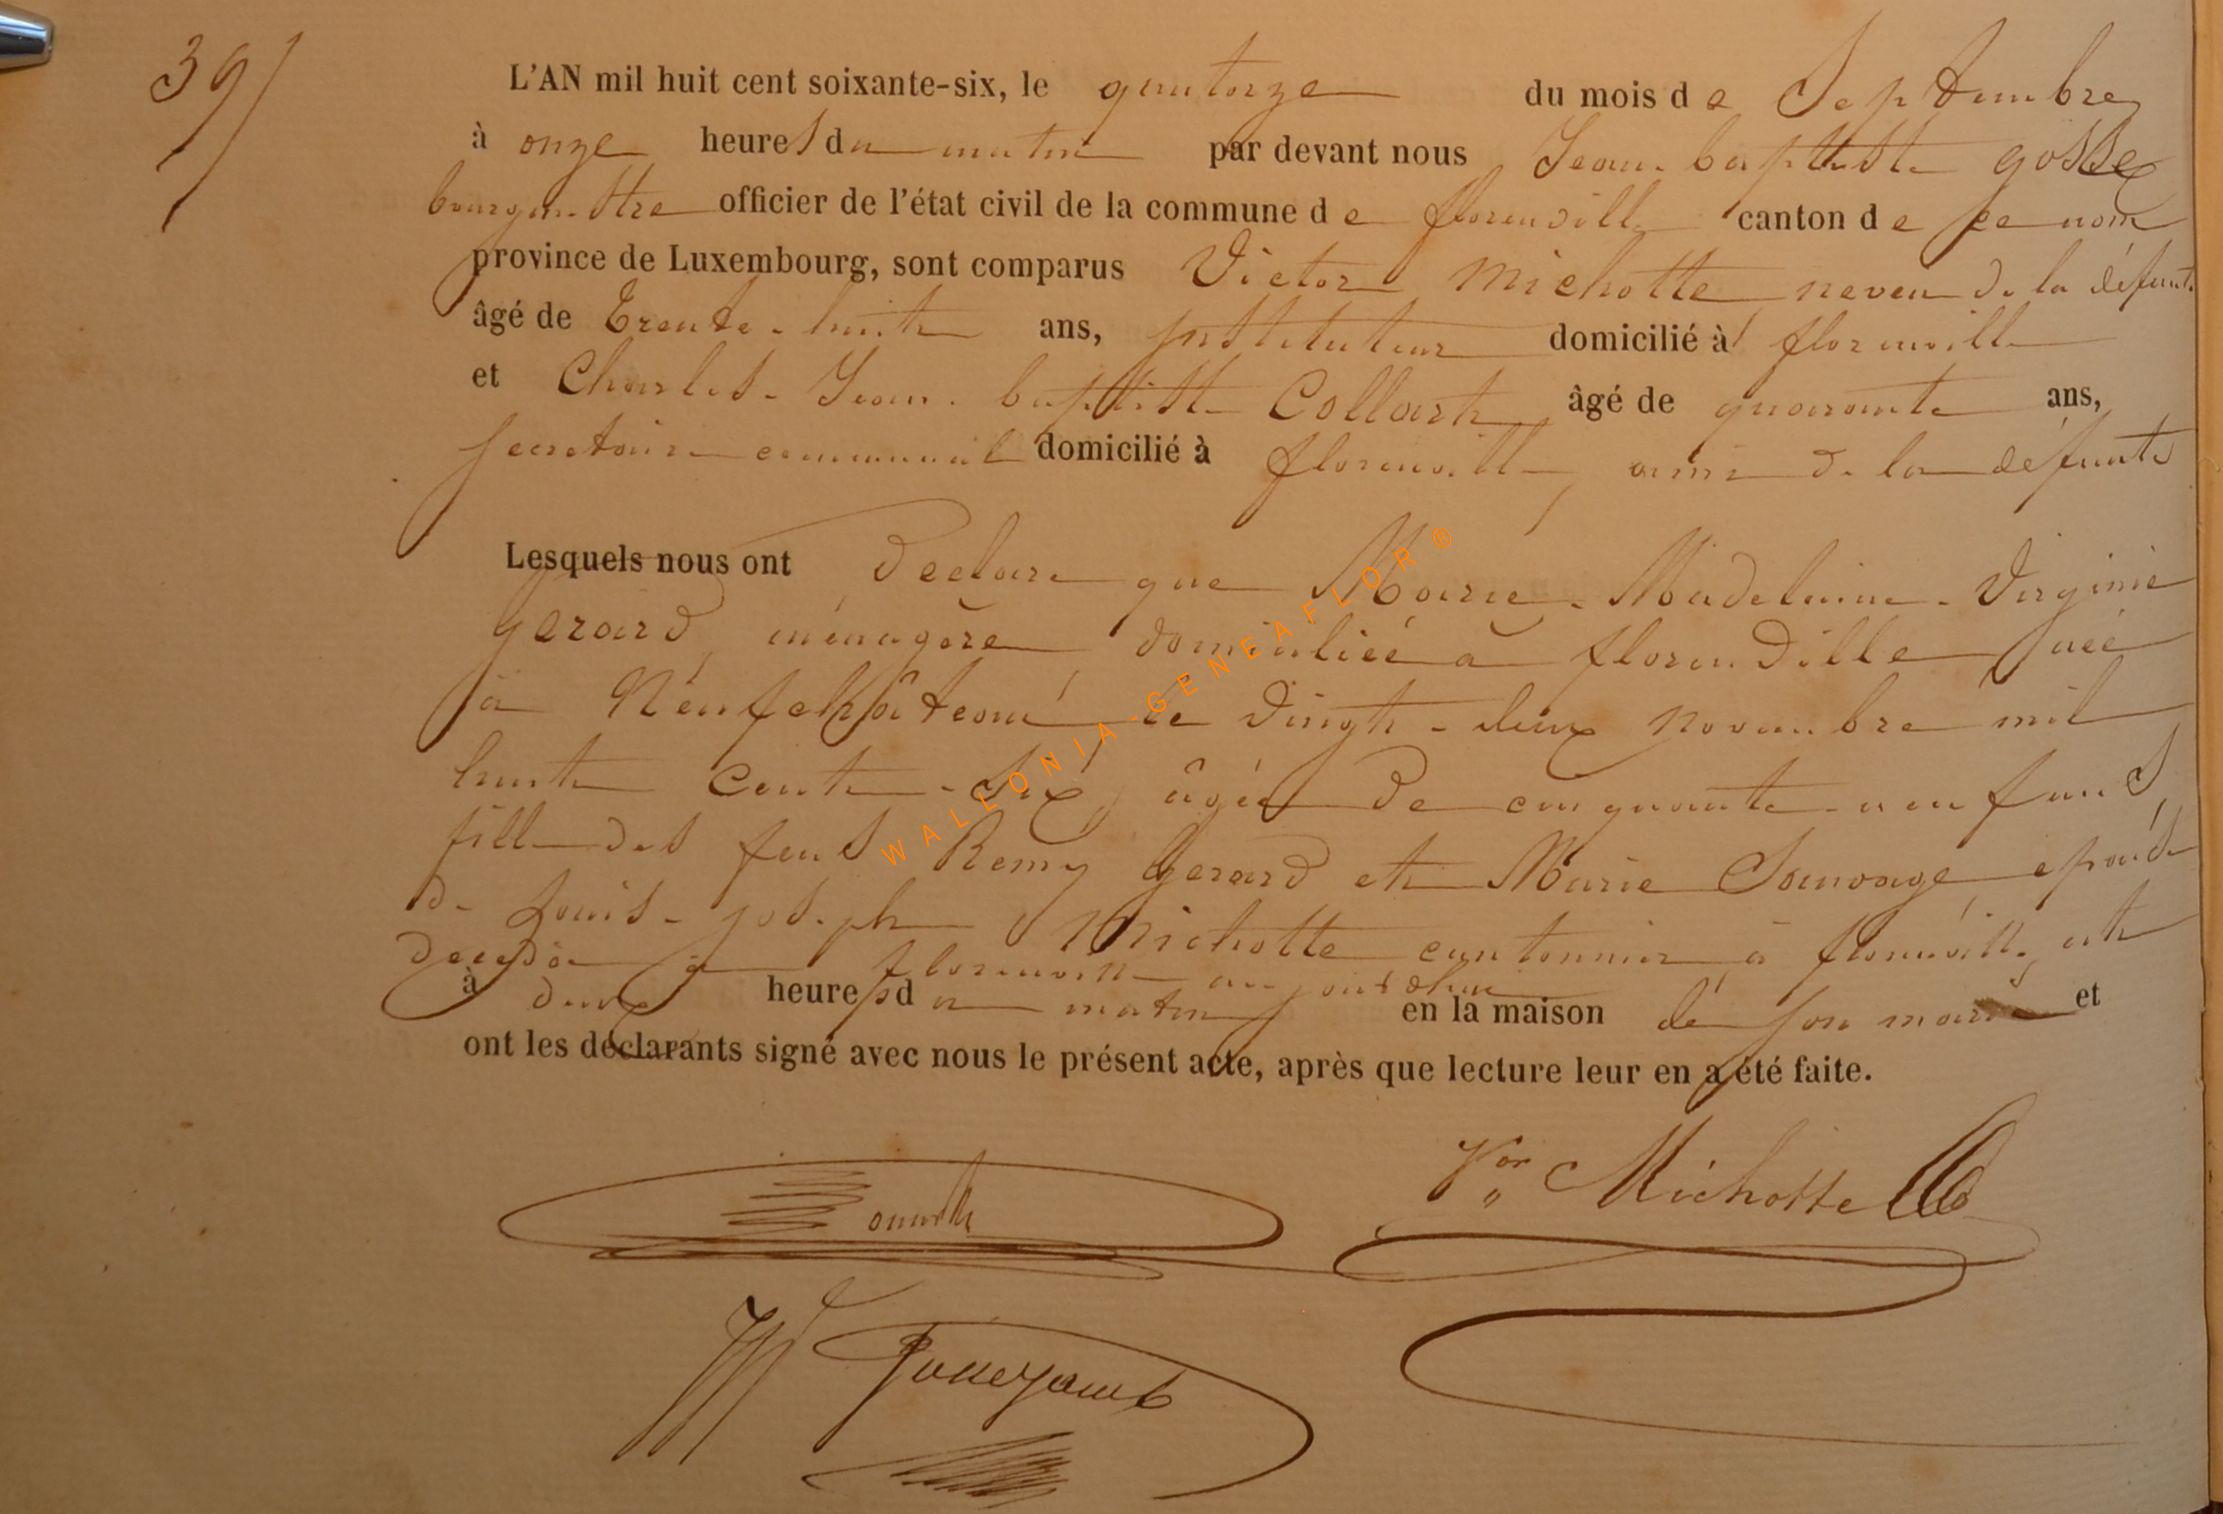 39/
L'AN mil huit cent soixante-six, le quatorze du mois de Septembre
à onze heures du matin par devant nous Jean-baptiste gosse
bourgmestre officier de l'état civil de la commune de florenville canton de ce nom
province de Luxembourg, sont comparus Victor Michotte neveu de la défunte
âgé de trente-huit ans, instituteur domicilié à florenville
et Charles-Jean-baptiste Collart âgé de quarante ans,
secretaire communal domicilié à florenville, ami de la défunte
Lesquels nous ont declaré que Marie-Madelaine-Virginie
gerard, ménagère domiciliée à florenville, née
à Neufchâteau le vingt-deux novembre mil
huit cent-six, âgée de cinquante-neuf ans,
fille des feus Remy Gerard et Marie Sauvage, epouse
de Louis-joseph Michotte cantonnier à florenville, est
décedée à florenville aujourdhui
à deux heures du matin en la maison de son mari et
ont les déclarants signé avec nous le présent acte, après que lecture leur en a été faite.
Vor Michotte
WALLONIA-GENEAFLOR®